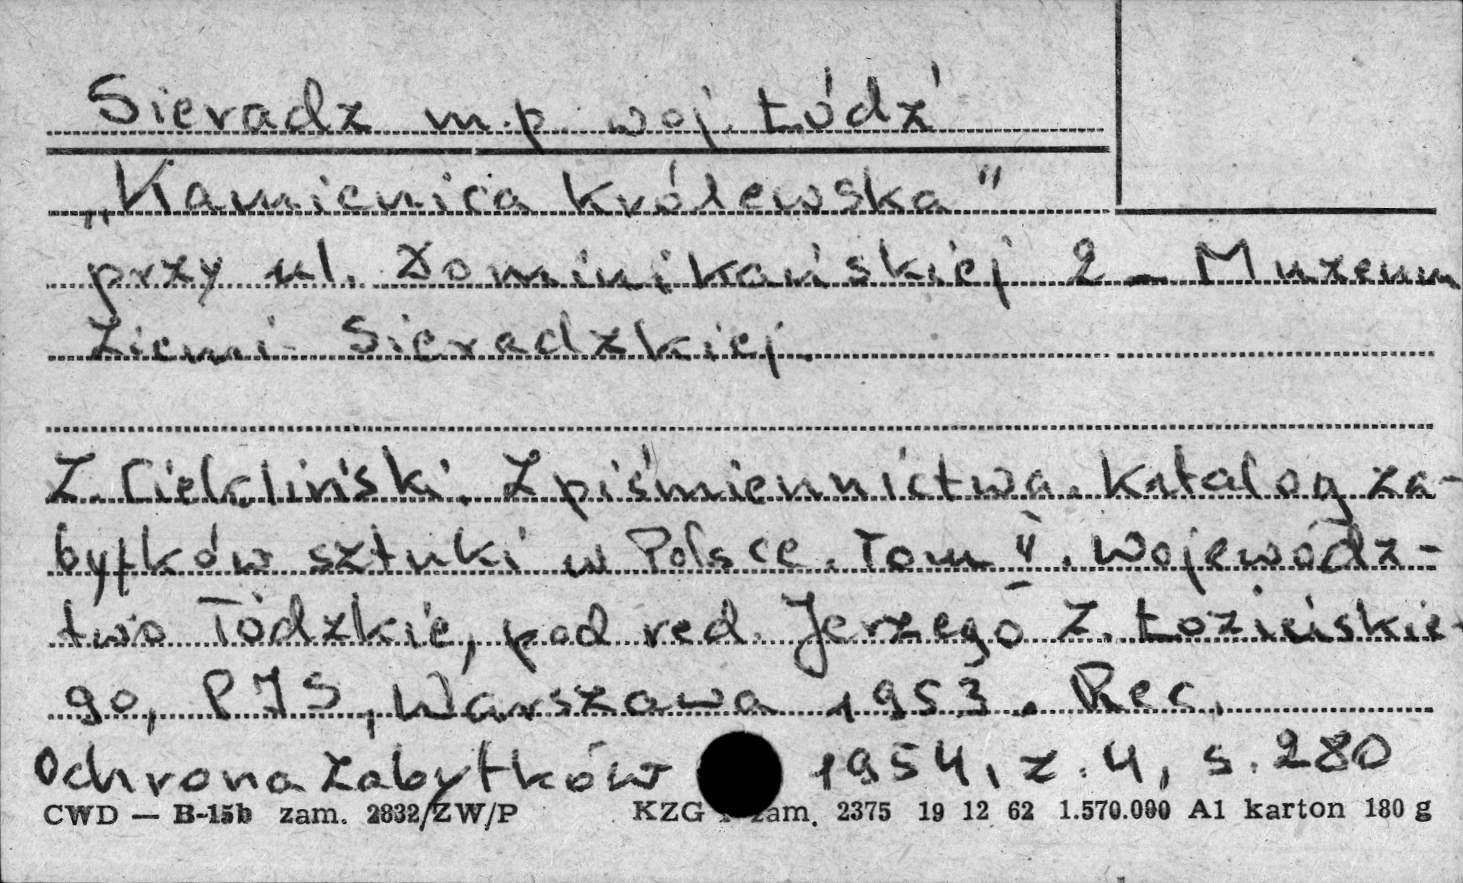 Sieradz m.p. woj. Łódź
„Kamienica Królewska”
przy ul. Dominikańskiej 2 – Muzeum
Ziemi Sieradzkiej.
Z. Ciekliński. Z piśmiennictwa. Katalog za-
bytków sztuki w Polsce. Tom II. Wojewódz-
two Łódzkie, pod red. Jerzego Z. Łozińskie-
go, PIS, Warszawa 1953. Rec.
Ochrona Zabytków 1954, z. 4, s. 280
CWD — B-15b zam. 2832/ZW/P KZG zam. 2375 19 12 62 1.570.000 A1 karton 180 g